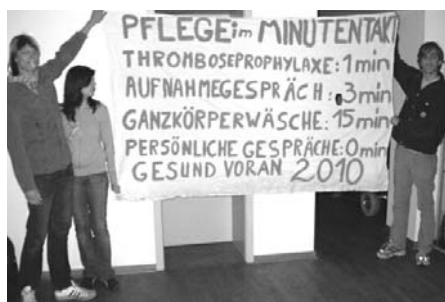 PFLEGE im MINUTENTAKT
THROMBOSEPROPHYLAXE: 1 min
AUFNAHMEGESPRÄCH: 3 min
GANZKÖRPERWÄSCHE: 15 min
PERSÖNLICHE GESPRÄCHE: 0 min
GESUND VORAN 2010